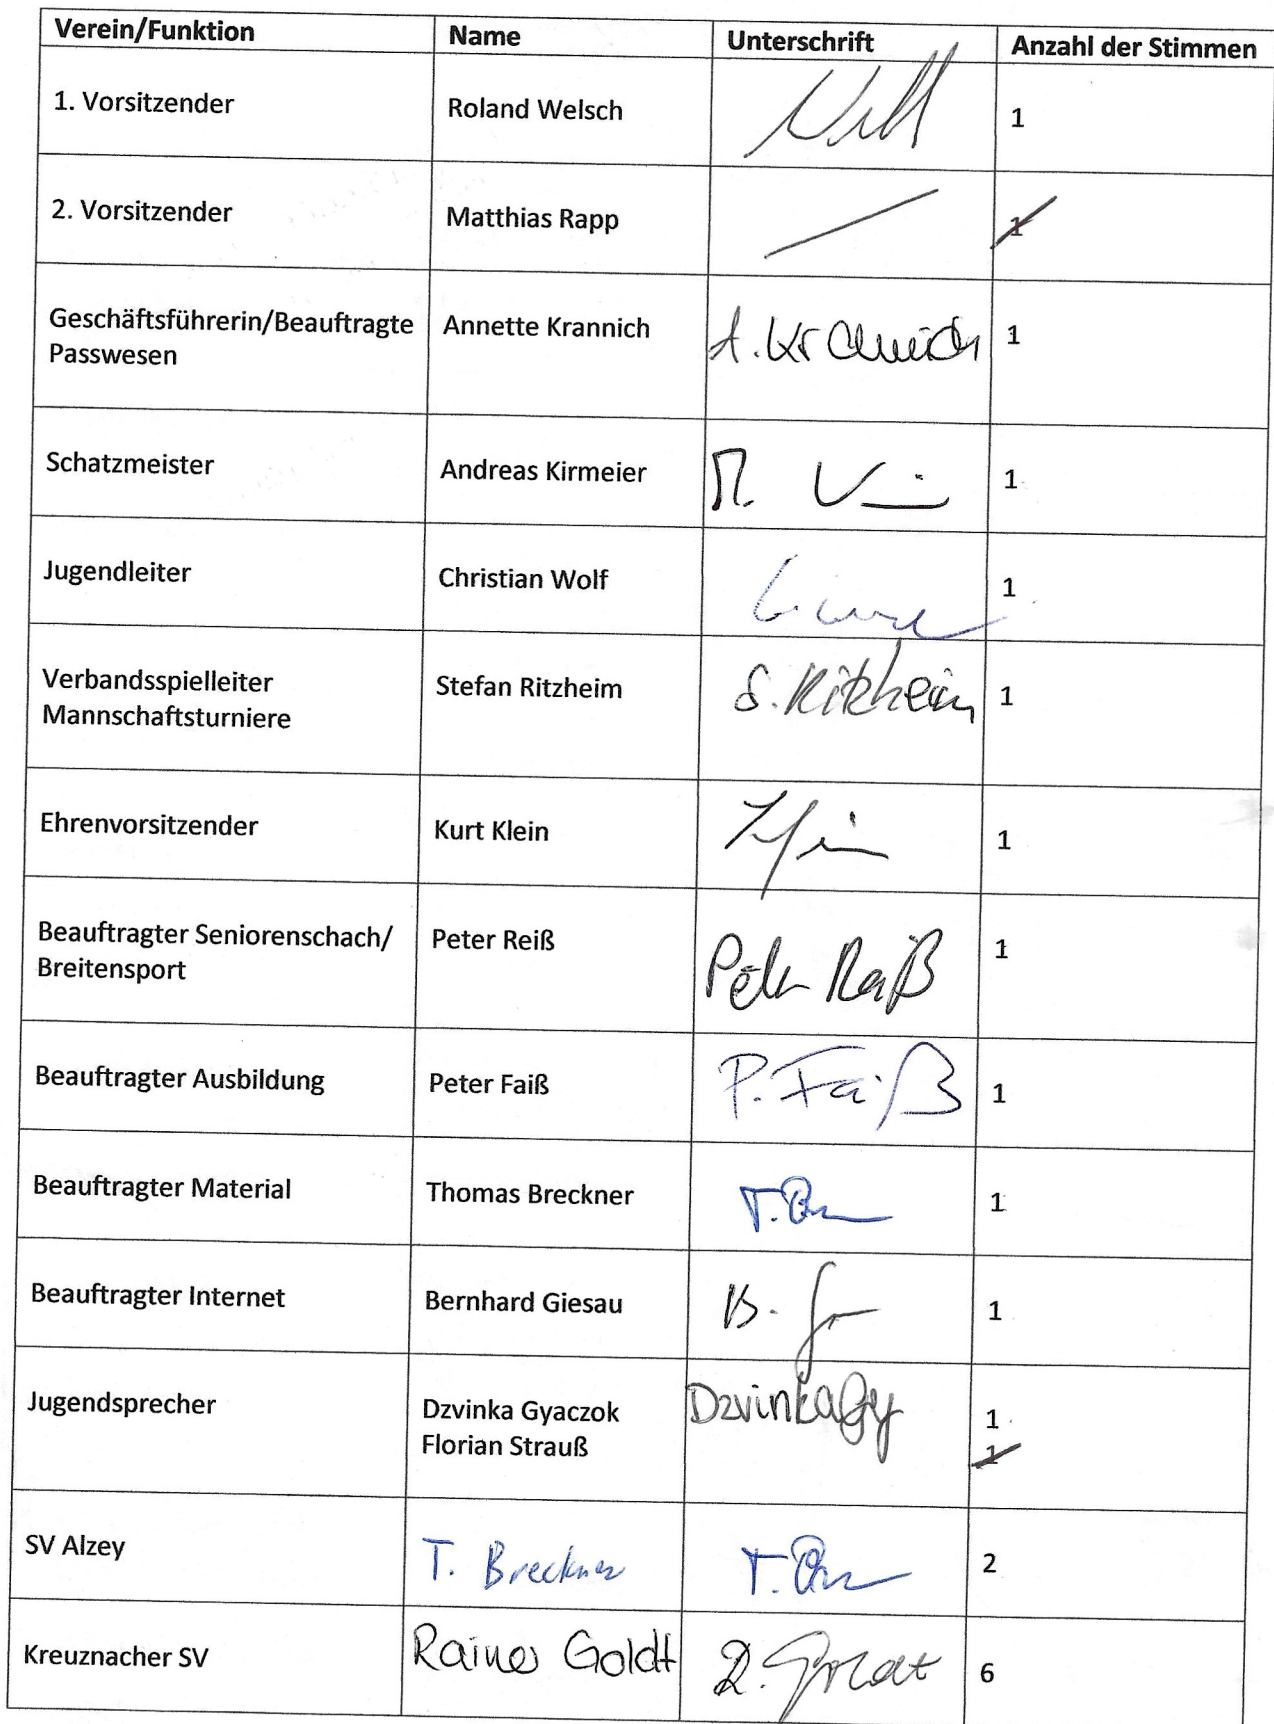 Verein/Funktion Name Unterschrift Anzahl der Stimmen
1. Vorsitzender Roland Welsch 1
2. Vorsitzender Matthias Rapp 1
Geschäftsführerin/Beauftragte Annette Krannich A. Krannich 1
Passwesen
Schatzmeister Andreas Kirmeier 1
Jugendleiter Christian Wolf 1
Verbandsspielleiter Stefan Ritzheim S. Ritzheim 1
Mannschaftsturniere
Ehrenvorsitzender Kurt Klein 1
Beauftragter Seniorenschach/ Peter Reiß Peter Reiß 1
Breitensport
Beauftragter Ausbildung Peter Faiß P. Faiß 1
Beauftragter Material Thomas Breckner 1
Beauftragter Internet Bernhard Giesau 1
Jugendsprecher Dzvinka Gyaczok Dzvinka Gy 1
Florian Strauß 1
SV Alzey T. Breckner 2
Kreuznacher SV Rainer Goldt R. Goldt 6